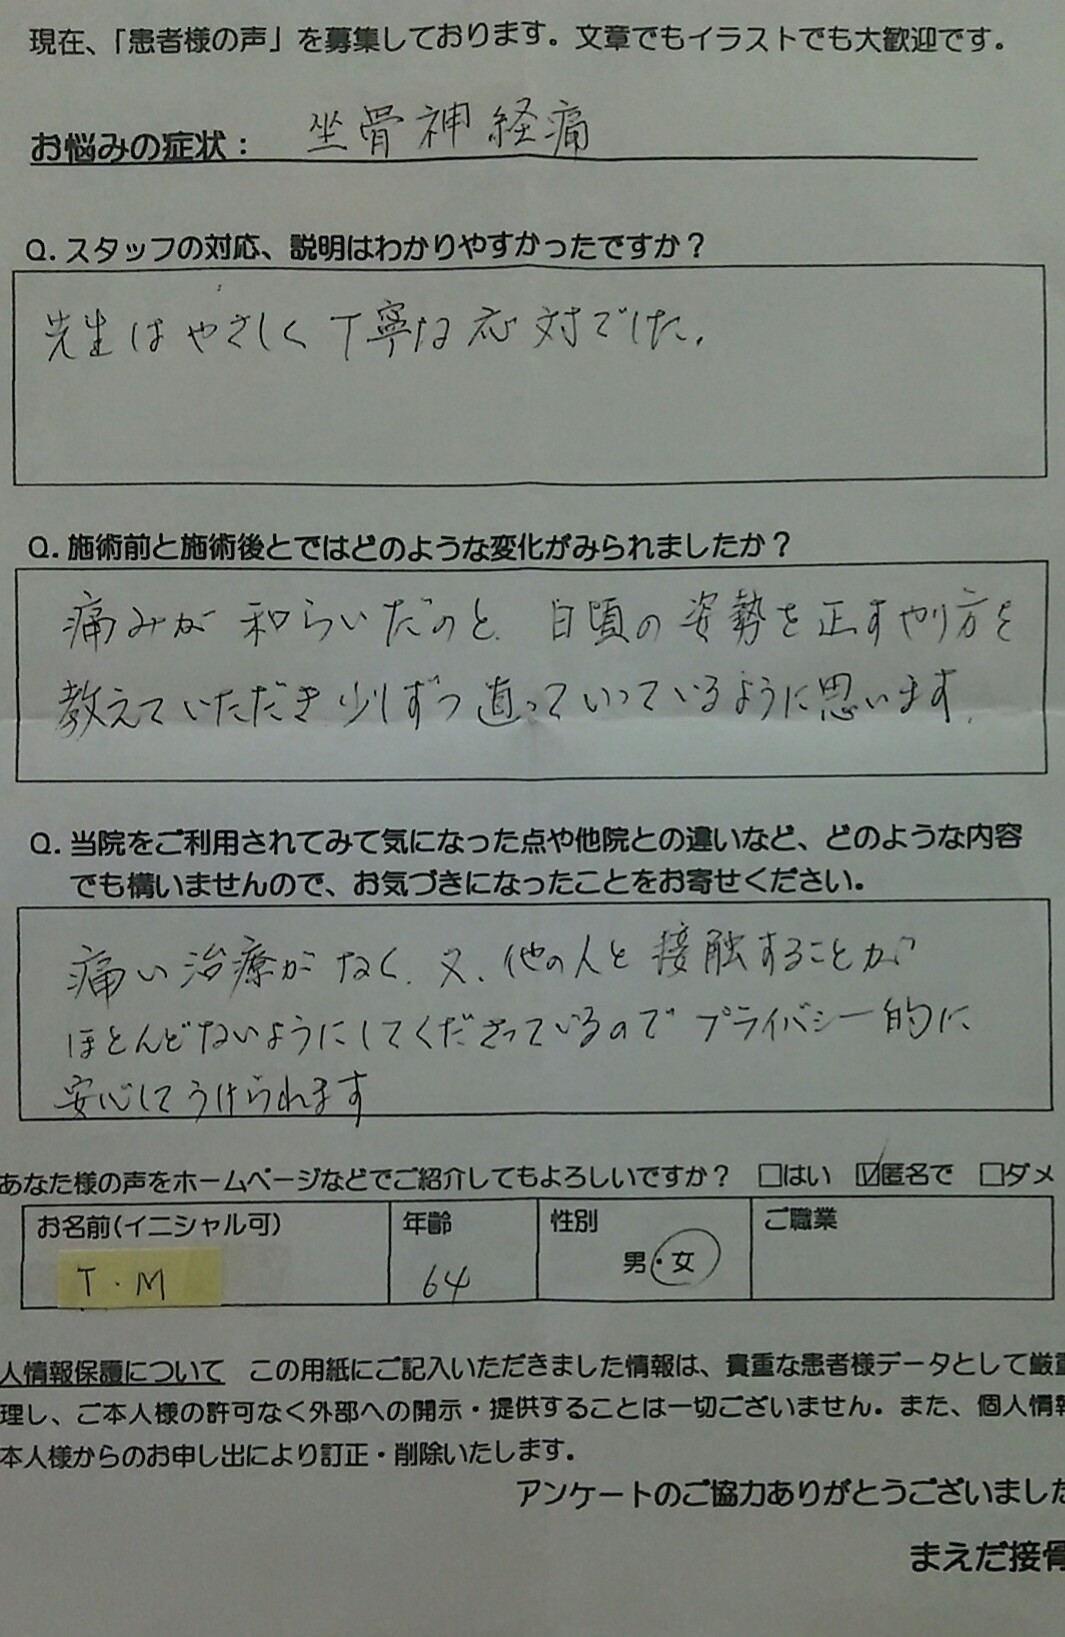 現在、「患者様の声」を募集しております。文章でもイラストでも大歓迎です。
お悩みの症状： 坐骨神経痛
Q. スタッフの対応、説明はわかりやすかったですか？
先生はやさしく丁寧な応対でした。
Q. 施術前と施術後とではどのような変化がみられましたか？
痛みが和らいだのと、日頃の姿勢を正すやり方を
教えていただき少しずつ直っていっているように思います。
Q. 当院をご利用されてみて気になった点や他院との違いなど、どのような内容
でも構いませんので、お気づきになったことをお寄せください。
痛い治療がなく、又、他の人と接触することが
ほとんどないようにしてくださっているのでプライバシー的に
安心してうけられます
あなた様の声をホームページなどでご紹介してもよろしいですか？ □はい ☑匿名で □ダメ
お名前(イニシャル可) 年齢 性別 ご職業
T.M 64 男・女
人情報保護について この用紙にご記入いただきました情報は、貴重な患者様データとして厳重
理し、ご本人様の許可なく外部への開示・提供することは一切ございません。また、個人情報
本人様からのお申し出により訂正・削除いたします。
アンケートのご協力ありがとうございました
まえだ接骨